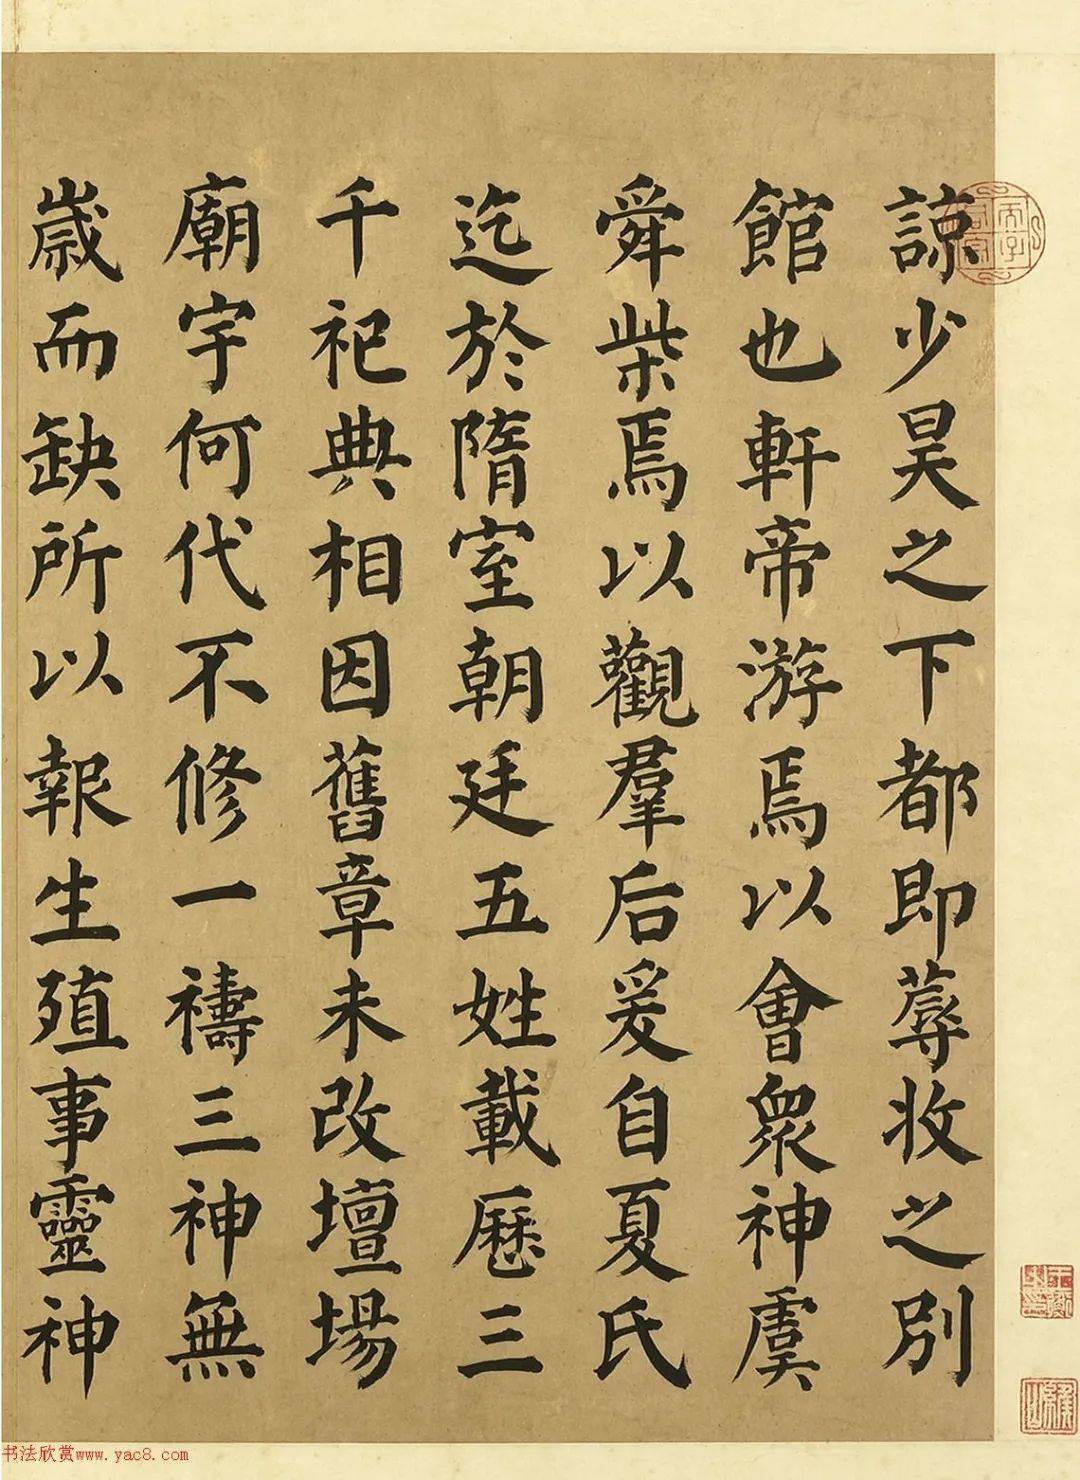 諒少昊之下都即蓐收之別
館也軒帝游焉以會衆神虞
舜柴焉以觀羣后爰自夏氏
迄於隋室朝廷五姓載歷三
千祀典相因舊章未改壇場
廟宇何代不修一禱三神無
歲而缺所以報生殖事靈神
书法欣赏www.yac8.com